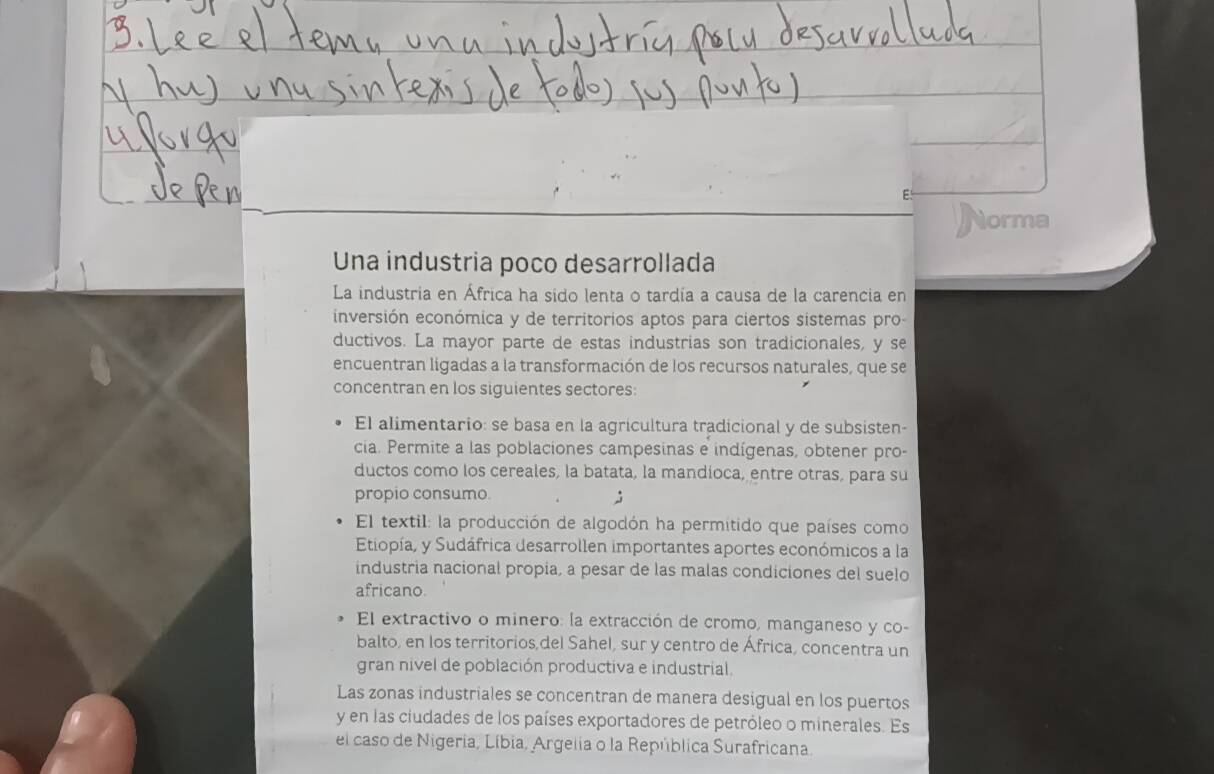 3. Lee el tema una industria poca desarrollada
y has una sintexis de todos sus puntos
u porqu
de pen
E
Norma
Una industria poco desarrollada
La industria en África ha sido lenta o tardía a causa de la carencia en
inversión económica y de territorios aptos para ciertos sistemas pro-
ductivos. La mayor parte de estas industrias son tradicionales, y se
encuentran ligadas a la transformación de los recursos naturales, que se
concentran en los siguientes sectores:
• El alimentario: se basa en la agricultura tradicional y de subsisten-
cia. Permite a las poblaciones campesinas e indígenas, obtener pro-
ductos como los cereales, la batata, la mandioca, entre otras, para su
propio consumo.
• El textil: la producción de algodón ha permitido que países como
Etiopía, y Sudáfrica desarrollen importantes aportes económicos a la
industria nacional propia, a pesar de las malas condiciones del suelo
africano.
• El extractivo o minero: la extracción de cromo, manganeso y co-
balto, en los territorios del Sahel, sur y centro de África, concentra un
gran nivel de población productiva e industrial.
Las zonas industriales se concentran de manera desigual en los puertos
y en las ciudades de los países exportadores de petróleo o minerales. Es
el caso de Nigeria, Libia, Argelia o la República Surafricana.